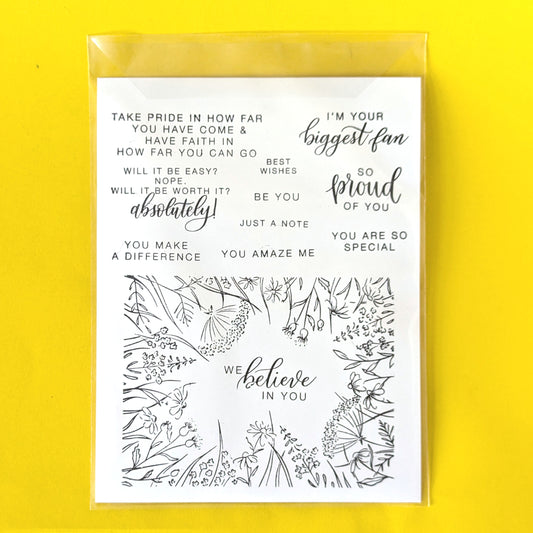 TAKE PRIDE IN HOW FAR
YOU HAVE COME &
HAVE FAITH IN
HOW FAR YOU CAN GO
I'M YOUR
biggest fan
WILL IT BE EASY?
NOPE.
WILL IT BE WORTH IT?
absolutely!
BEST
WISHES
BE YOU
SO
proud
OF YOU
JUST A NOTE
YOU MAKE
A DIFFERENCE
YOU AMAZE ME
YOU ARE SO
SPECIAL
WE believe
IN YOU